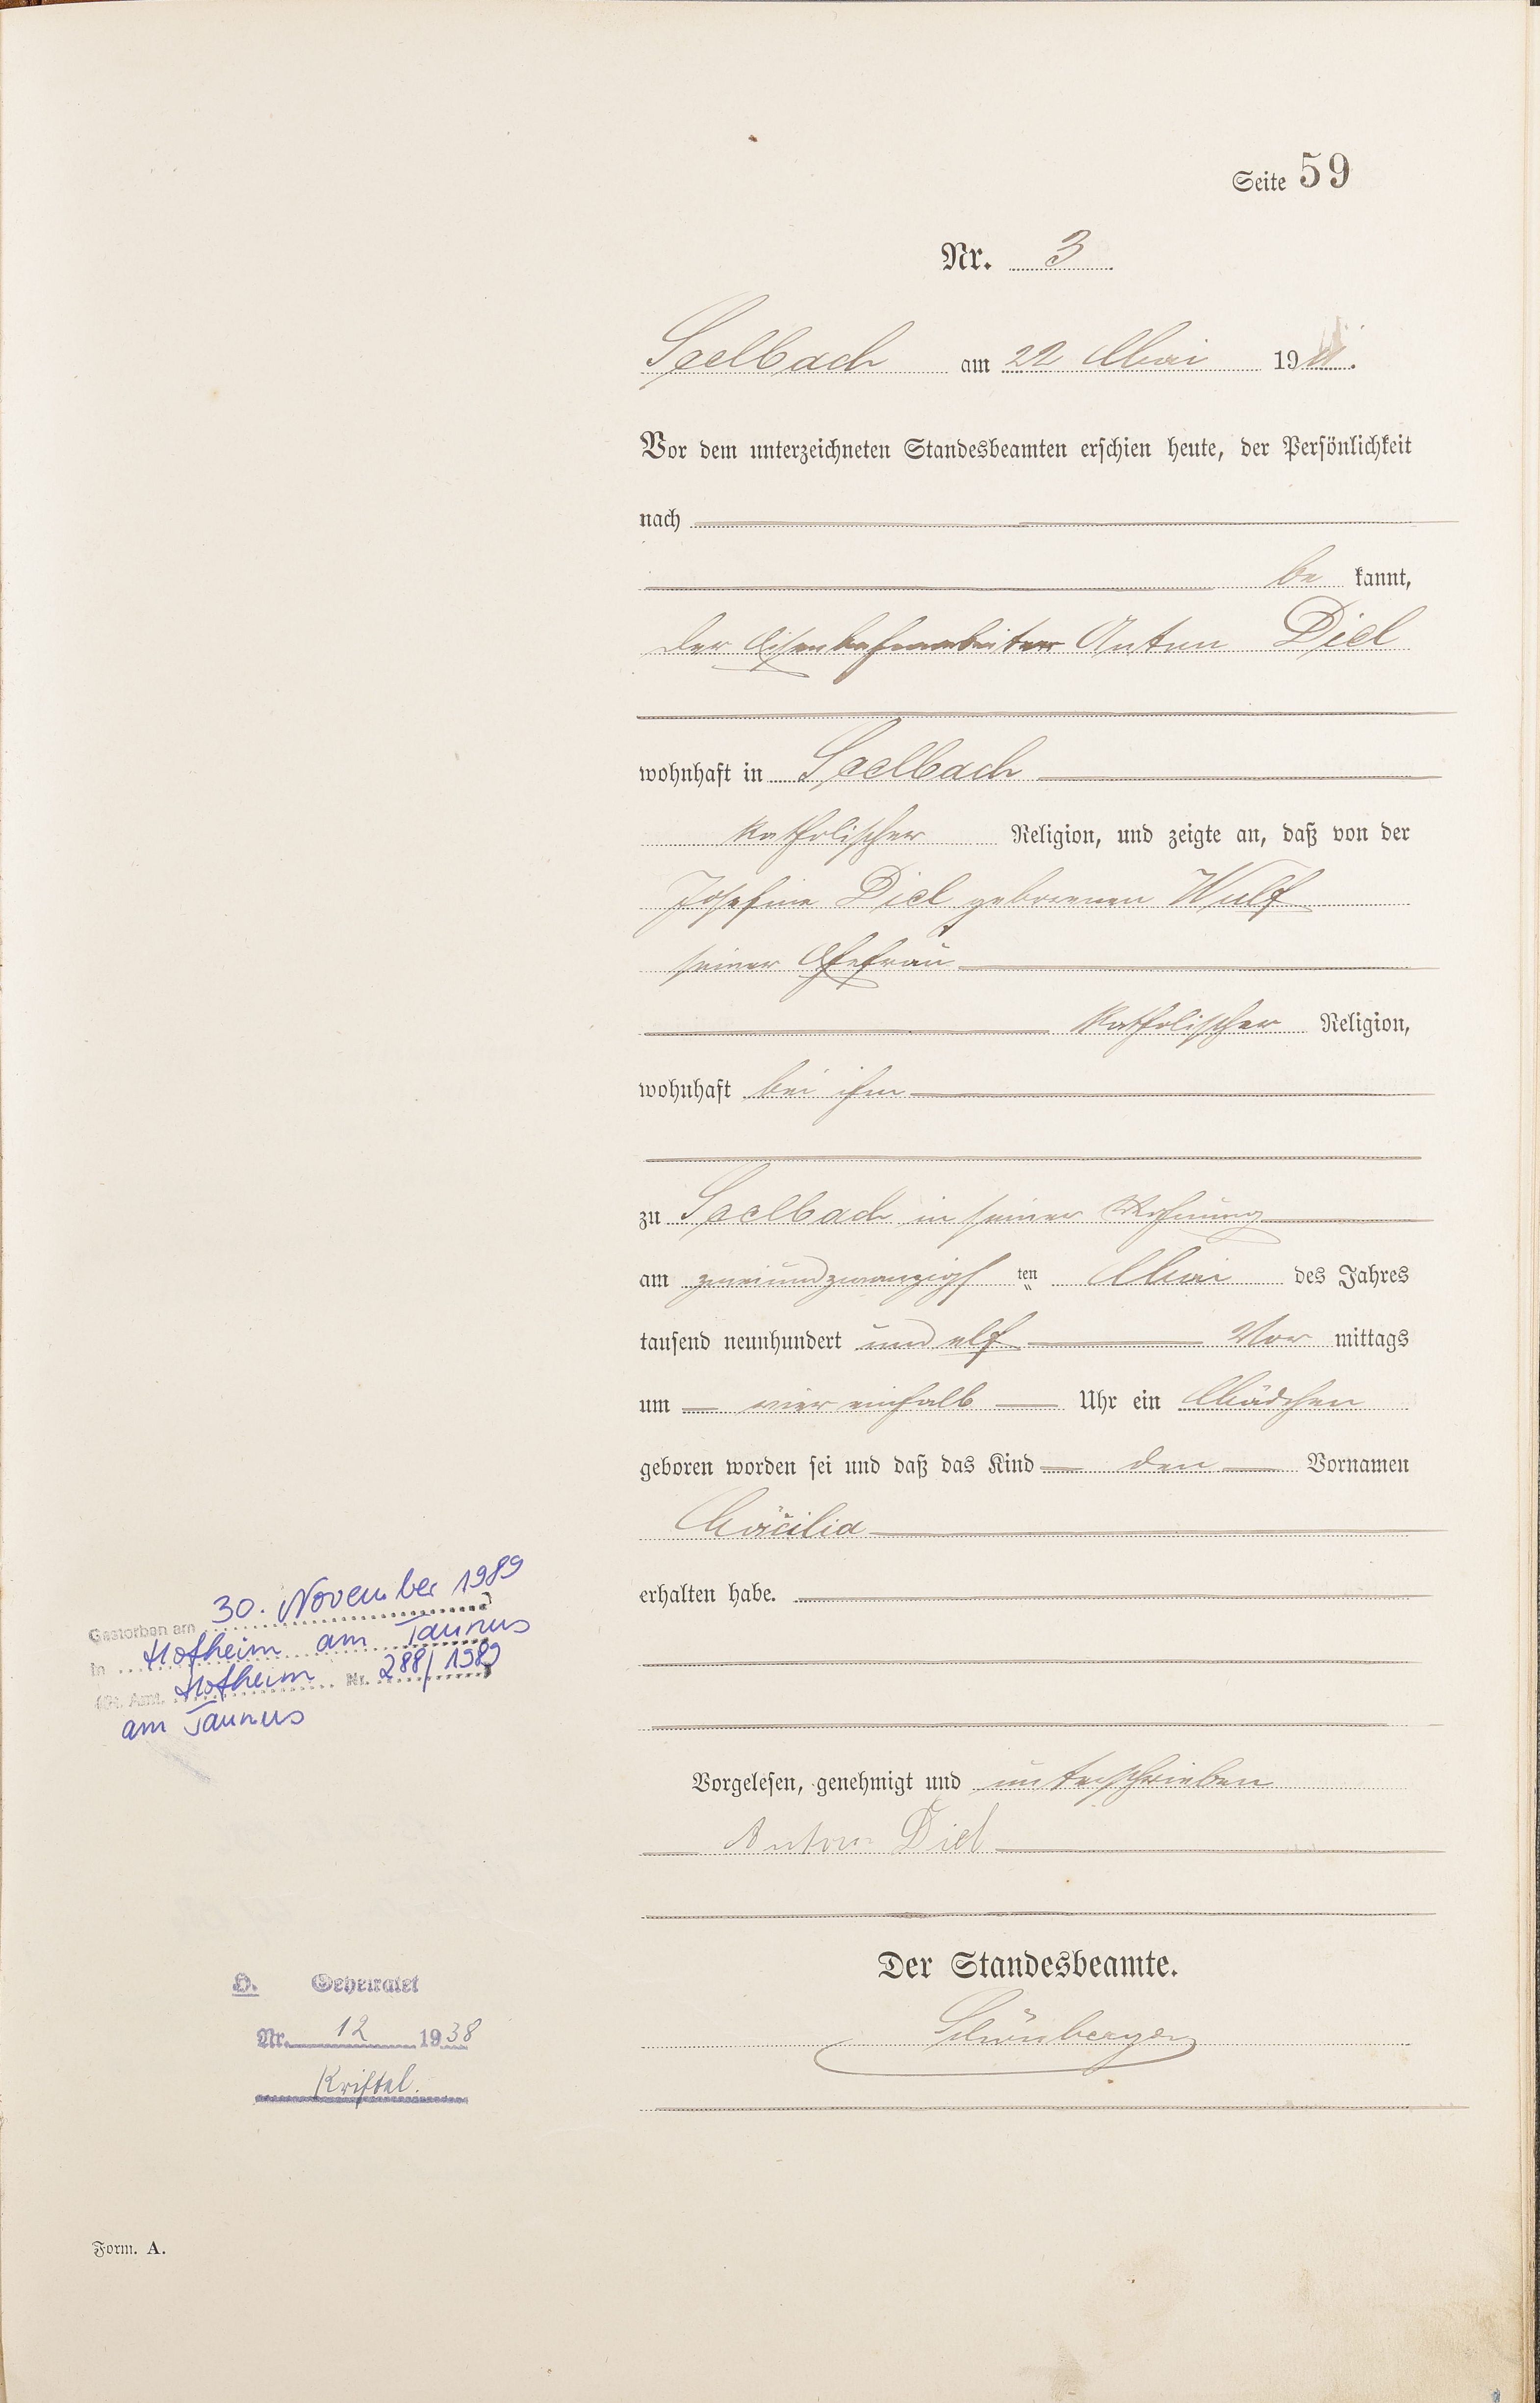 Seite 59
Nr. 3
Seelbach am 22 Mai 1911.
Vor dem unterzeichneten Standesbeamten erschien heute, der Persönlichkeit
nach
be kannt,
der Eisenbahnarbeiter Anton Diel
wohnhaft in Seelbach
katholischer Religion, und zeigte an, daß von der
Josefine Diel geborenen Wulf
seiner Ehefrau
katholischer Religion,
wohnhaft bei ihm
zu Seelbach in seiner Wohnung
am zweiundzwanzigs ten Mai des Jahres
tausend neunhundert und elf Vor mittags
um vier einhalb Uhr ein Mädchen
geboren worden sei und daß das Kind den Vornamen
Cäcilia
erhalten habe.
Gestorben am 30. November 1989
in Hofheim am Taunus
(St. Amt. Hofheim Nr. 288/1989)
am Taunus
Vorgelesen, genehmigt und unterschrieben
Anton Diel
Der Standesbeamte.
Schönberger
H. Geheiratet
Nr. 12 1938
Kriftel.
Form. A.